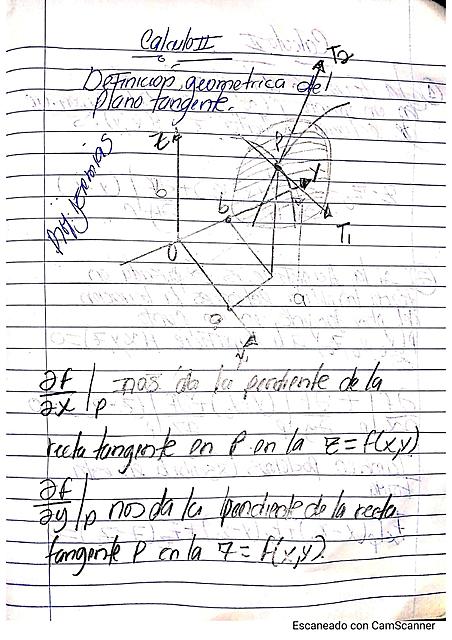 Calculo II
Definicion geometrica del
plano tangente.
T2
z
P
b
y
T1
0
a
a
x
∂f/∂x |p nos da la pendiente de la
recta tangente en P en la z = f(x,y)
∂f/∂y |p nos da la pendiente de la recta
tangente P en la z = f(x,y).
Escaneado con CamScanner